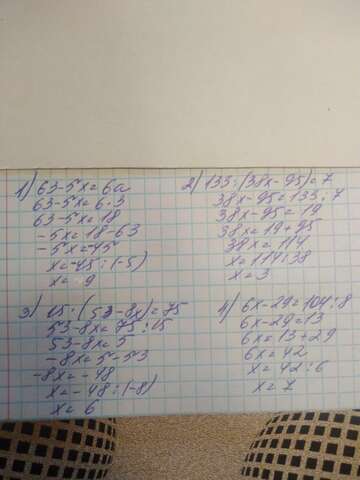 1) 63-5x=6a
63-5x=6·3
63-5x=18
-5x=18-63
-5x=-45
x=-45:(-5)
x=9
2) 133:(38x-95)=7
38x-95=133:7
38x-95=19
38x=19+95
38x=114
x=114:38
x=3
3) 15:(53-8x)=75
53-8x=75:15
53-8x=5
-8x=5-53
-8x=-48
x=-48:(-8)
x=6
4) 6x-29=104:8
6x-29=13
6x=13+29
6x=42
x=42:6
x=7